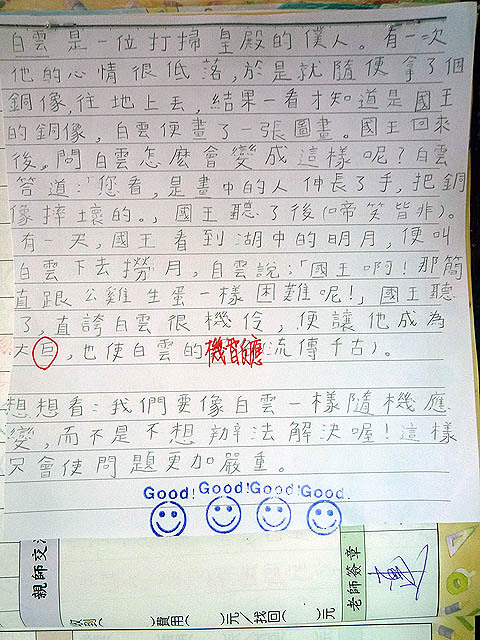 白雲是一位打掃皇殿的僕人。有一次
他的心情很低落,於是就隨便拿了個
銅像,往地上丟,結果一看才知道是國王
的銅像,白雲便畫了一張圖畫。國王回來
後,問白雲怎麼會變成這樣呢?白雲
答道:「您看,是畫中的人伸長了手,把銅
像摔壞的。」國王聽了後(啼笑皆非)。
有一天,國王看到湖中的明月,便叫
白雲下去撈月,白雲說:「國王啊!那簡
直跟公雞生蛋一樣困難呢!」國王聽
了,直誇白雲很機伶,便讓他成為
大巨,也使白雲的機智(流傳千古)。
想想看:我們要像白雲一樣隨機應
變,而不是不想辦法解決喔!這樣
只會使問題更加嚴重。
Good! Good! Good! Good.
親師交
費用( )元/找回( )元
老師簽章